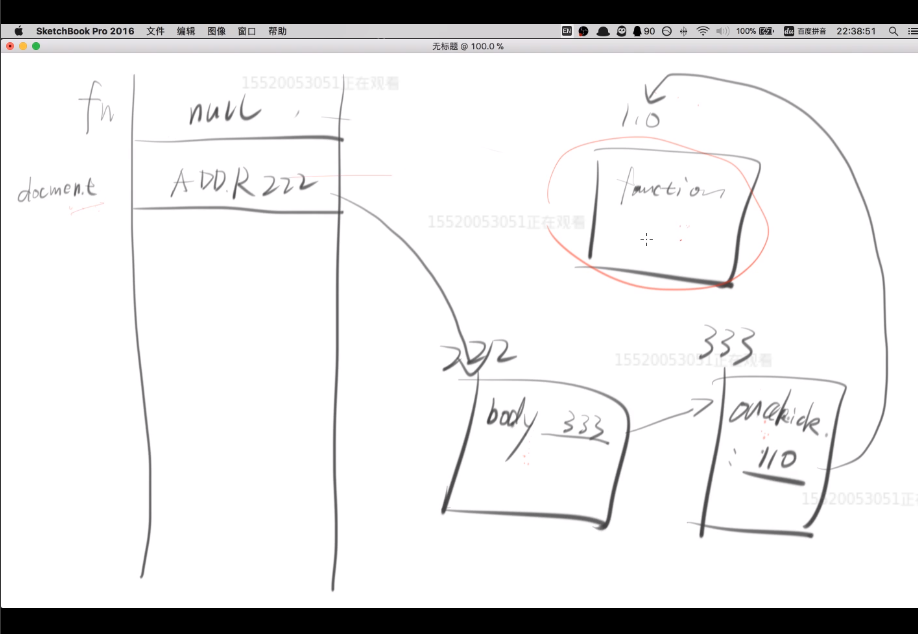 SketchBook Pro 2016 文件 编辑 图像 窗口 帮助 90 100% 百度拼音 22:38:51
无标题 @ 100.0 %
15520053051正在观看
fn null
110
document ADDR 222
function
15520053051正在观看
222
333
15520053051正在观看
body 333
onclick
: 110
15520053051正在